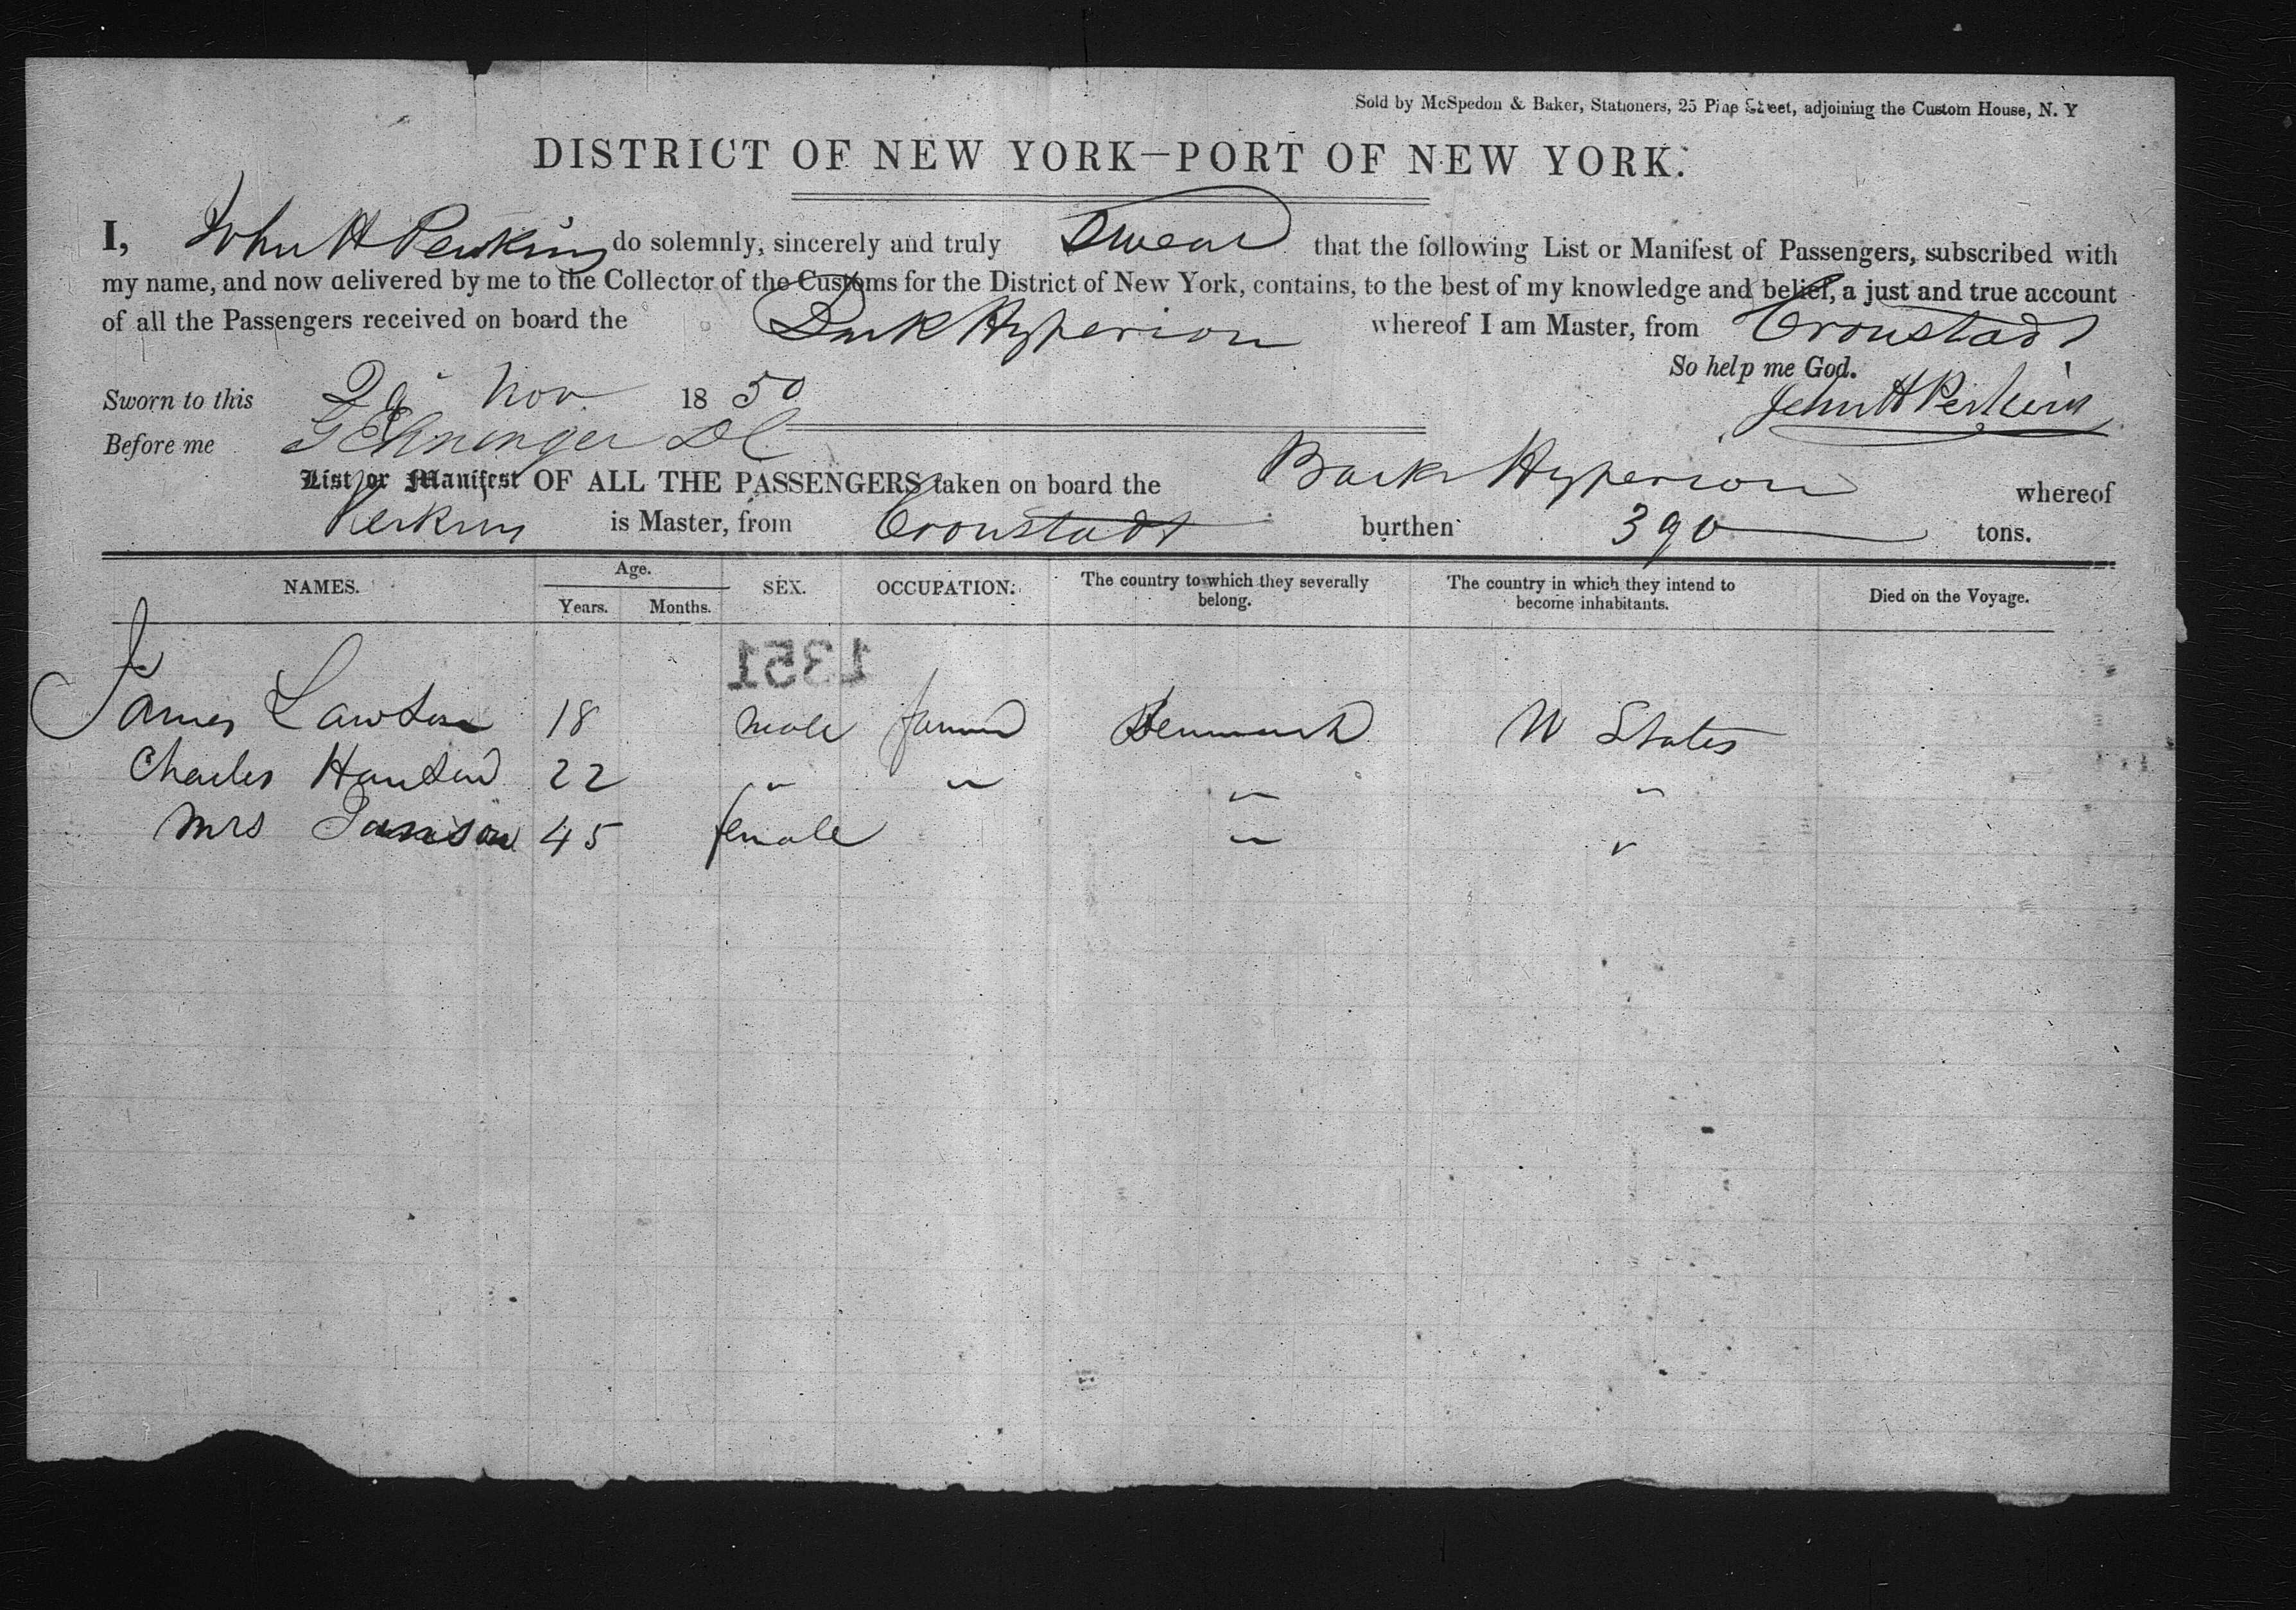 Sold by McSpedon & Baker, Stationers, 25 Pine Street, adjoining the Custom House, N. Y
DISTRICT OF NEW YORK—PORT OF NEW YORK.
I, John H Perkins do solemnly, sincerely and truly Swear that the following List or Manifest of Passengers, subscribed with
my name, and now delivered by me to the Collector of the Customs for the District of New York, contains, to the best of my knowledge and belief, a just and true account
of all the Passengers received on board the Bark Hyperion whereof I am Master, from Cronstadt
So help me God.
Sworn to this 29 Nov 1850
John H Perkins
Before me
List or Manifest OF ALL THE PASSENGERS taken on board the Bark Hyperion whereof
Perkins is Master, from Cronstadt burthen 390 tons.
NAMES. Age. Years. Months. SEX. OCCUPATION. The country to which they severally belong. The country in which they intend to become inhabitants. Died on the Voyage.
1351
James Lawson 18 male farmer Denmark U States
Charles Hanson 22 " " " "
Mrs Janson 45 female " "